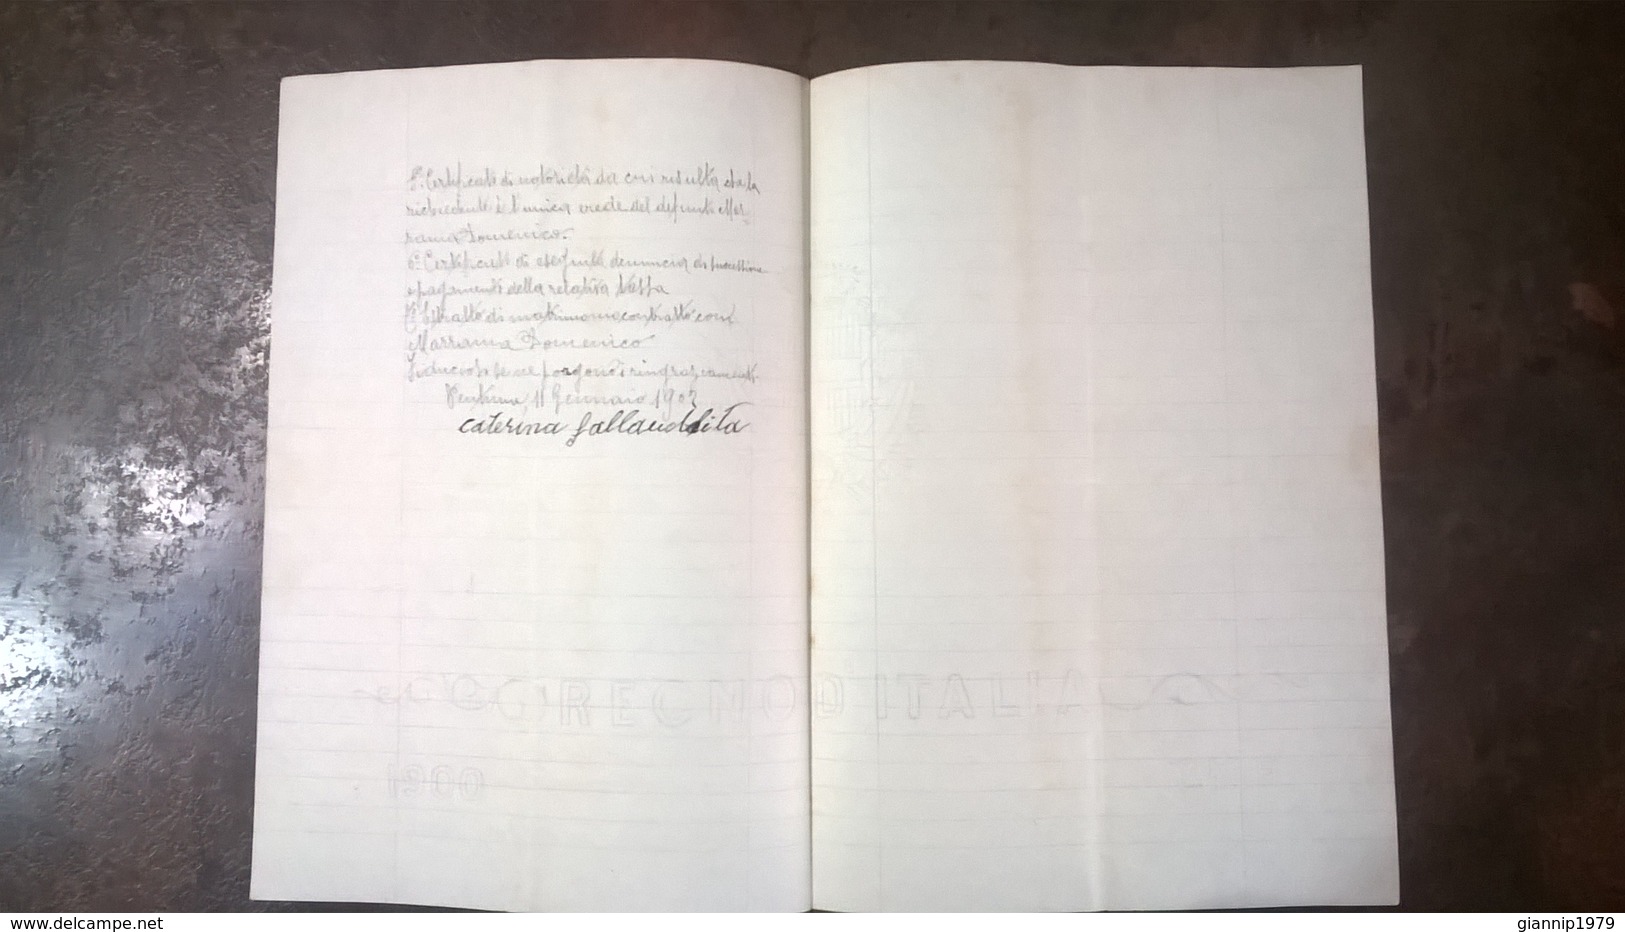 5º Certificato di notorietà da cui risulta che la
richiedente è l'unica erede del defunto Mar-
rama Domenico.
6º Certificato di eseguita denuncia di successione
e pagamento della relativa tassa
7º Estratto di matrimonio contratto con
Marrama Domenico
se ne porgono i ringraziamenti.
11 Gennaio 1902
Caterina
REGNO D ITALIA
1900
www.delcampe.net
giannip1979